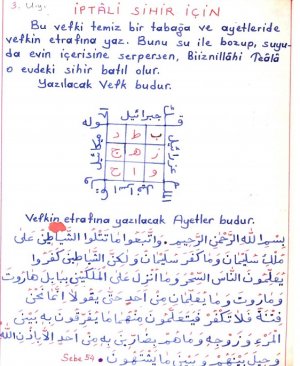 3. Uyg.
İPTALİ SİHİR İÇİN
Bu vefki temiz bir tabağa ve ayetleride
vefkin etrafına yaz. Bunu su ile bozup, suyu-
da evin içerisine serpersen, Biiznillâhi Teâlâ
o evdeki sihir batıl olur.
Yazılacak Vefk budur.
جبرائيل
ب ط د
ج ه ز
ج ا و
عزرائيل
ميكائيل
Vefkin etrafına yazılacak Ayetler budur.
بِسْمِ اللهِ الرَّحْمٰنِ الرَّحِيمِ. وَاتَّبَعُوا مَا تَتْلُوا الشَّيَاطِينُ عَلٰى
مُلْكِ سُلَيْمَانَ وَمَا كَفَرَ سُلَيْمَانُ وَلٰكِنَّ الشَّيَاطِينَ كَفَرُوا
يُعَلِّمُونَ النَّاسَ السِّحْرَ وَمَا أُنْزِلَ عَلَى الْمَلَكَيْنِ بِبَابِلَ هَارُوتَ
وَمَارُوتَ وَمَا يُعَلِّمَانِ مِنْ أَحَدٍ حَتّٰى يَقُولَا إِنَّمَا نَحْنُ
فِتْنَةٌ فَلَا تَكْفُرْ فَيَتَعَلَّمُونَ مِنْهُمَا مَا يُفَرِّقُونَ بِهِ بَيْنَ
الْمَرْءِ وَزَوْجِهِ وَمَا هُمْ بِضَارِّينَ بِهِ مِنْ أَحَدٍ إِلَّا بِإِذْنِ اللهِ
وَحِيلَ بَيْنَهُمْ وَبَيْنَ مَا يَشْتَهُونَ. Sebe 54